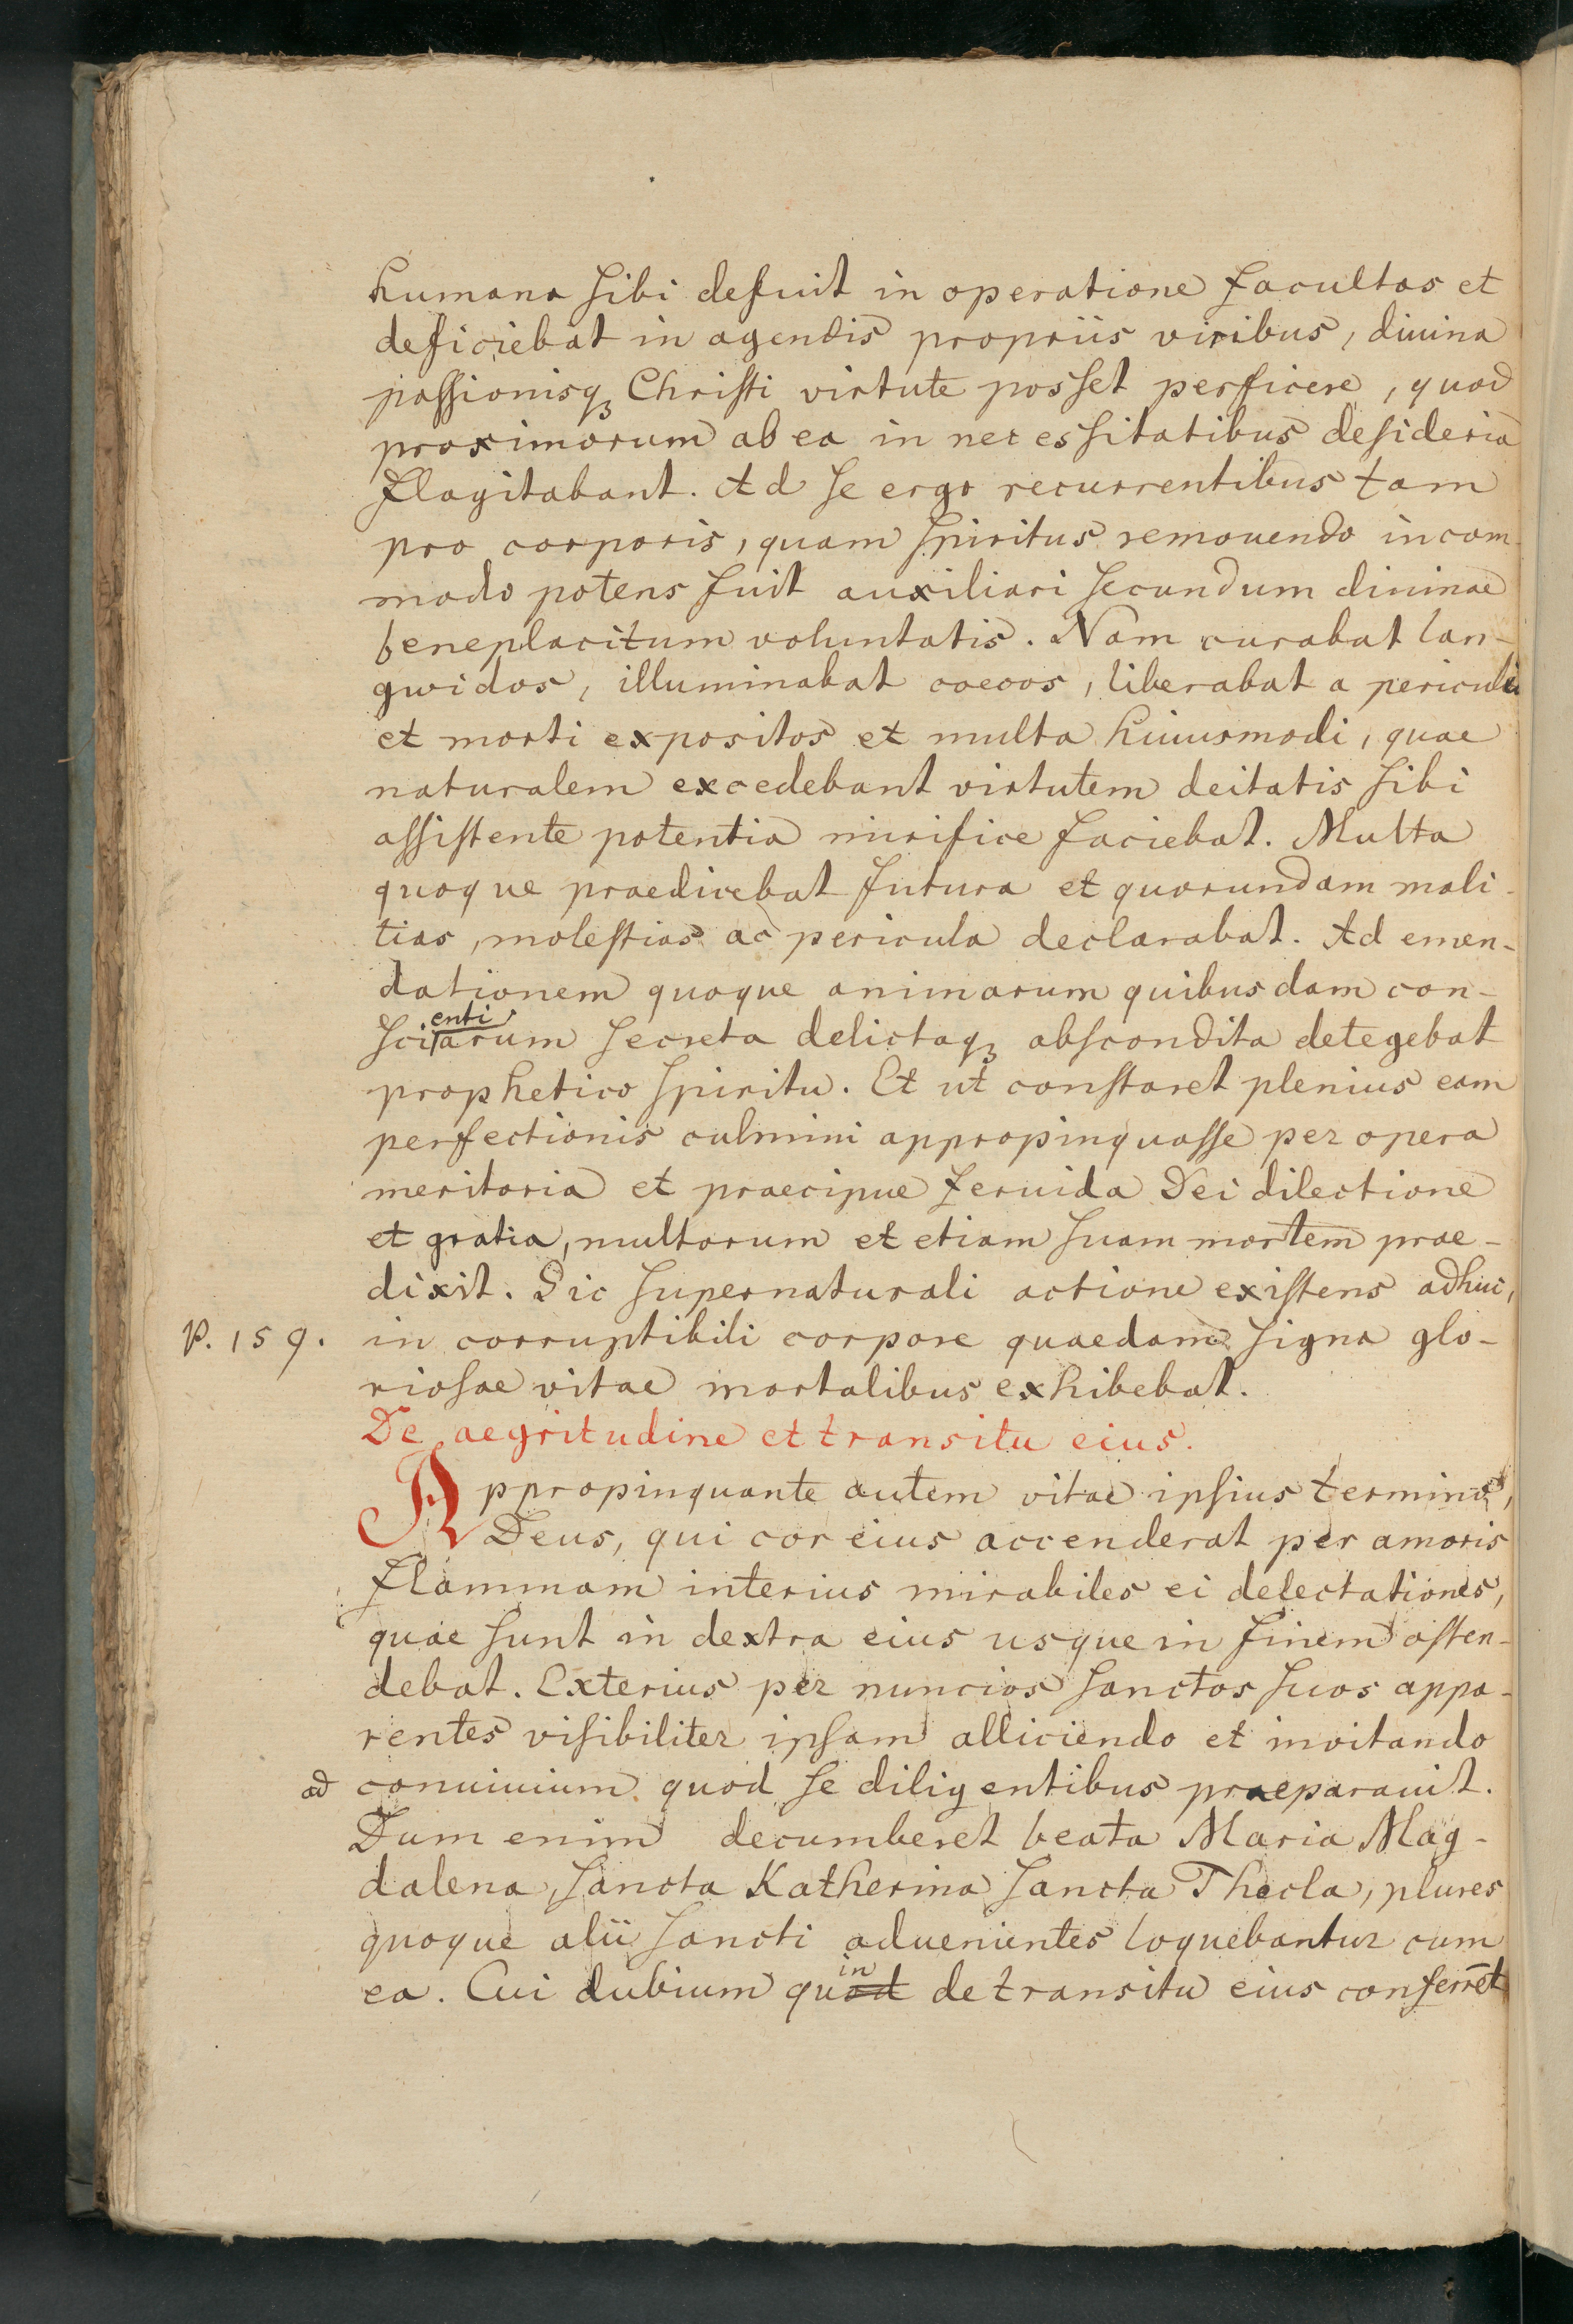 humana sibi defuit in operatione facultas et
deficiebat in agendis propriis viribus, diuina
passionisqꝫ Christi virtute posset perficere, quod
proximorum ab ea in necessitatibus desideria
flagitabant. Ad se ergo recurrentibus tam
pro corporis, quam spiritus remouendo incom-
modo potens fuit auxiliari secundum diuinae
beneplacitum voluntatis. Nam curabat lan-
gwidos, illuminabat coecos, liberabat a periculis
et morti expositos et multa huiusmodi, quae
naturalem excedebant virtutem deitatis sibi
assistente potentia mirifice faciebat. Multa
quoque praedicebat futura et quorundam mali-
tias, molestias ac pericula declarabat. Ad emen-
dationem quoque animarum quibusdam con-
enti
sciarum secreta delictaqꝫ abscondita detegebat
prophetico spiritu. Et ut constaret plenius eam
perfectionis culmini appropinquasse per opera
meritoria et praecipue feruida Dei dilectione
et gratia, multorum et etiam suam mortem prae-
dixit. Sic supernaturali actione existens adhuc,
P. 159. in corruptibili corpore quaedam signa glo-
riosae vitae mortalibus exhibebat.
De aegritudine et transitu eius.
Appropinquante autem vitae ipsius termino,
Deus, qui cor eius accenderat per amoris
flammam interius mirabiles ei delectationes,
quae sunt in dextra eius usque in finem osten-
debat. Exterius per nuncios sanctos suos appa-
rentes visibiliter ipsam alliciendo et invitando
ad conuiuium quod se diligentibus praeparauit.
Dum enim decumberet beata Maria Mag-
dalena, sancta Katherina sancta Thecla, plures
quoque alii sancti aduenientes loquebantur cum
in
ea. Cui dubium quod de transitu eius conferret